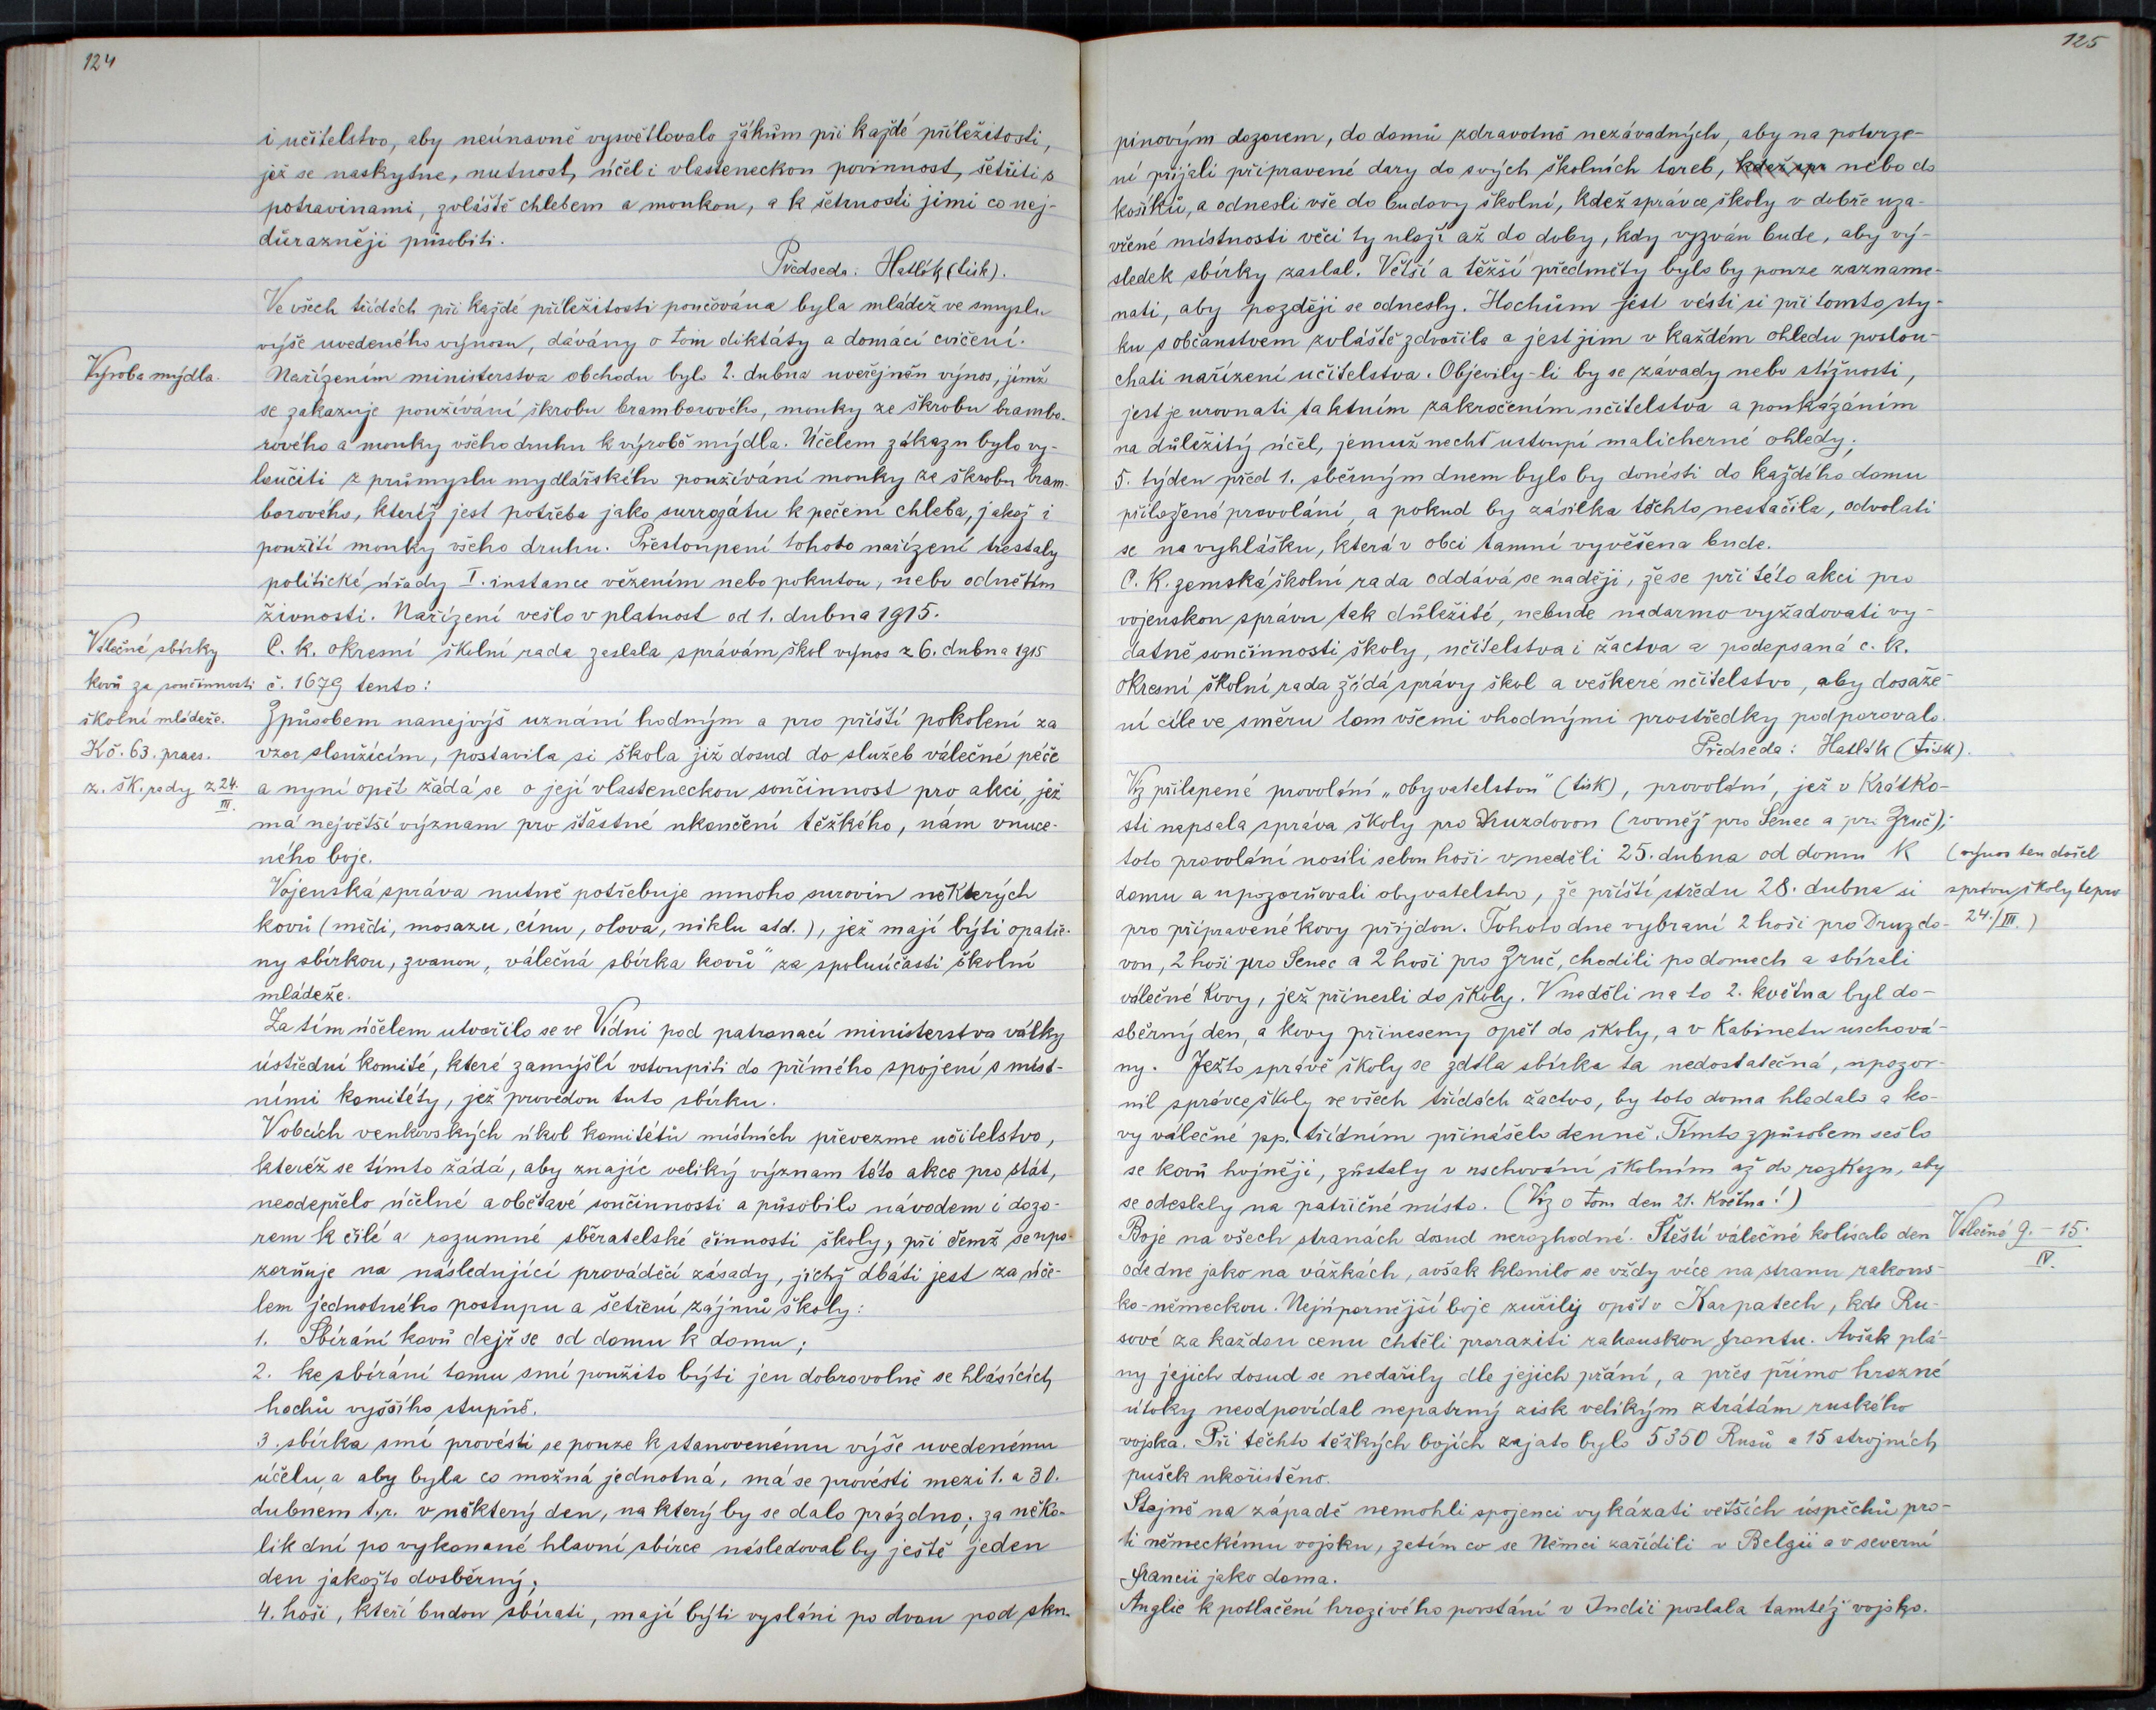 124
i učitelstvo, aby neúnavně vysvětlovalo žákům při každé příležitosti,
jež se naskytne, nutnost, účel i vlasteneckou povinnost, šetřiti s
potravinami, zvláště chlebem a moukou, a k šetrnosti jimi co nej-
důrazněji působiti.
Předseda: Hatlák (tisk).
Ve všech třídách při každé příležitosti poučována byla mládež ve smyslu
výše uvedeného výnosu, dávány o tom diktáty a domácí cvičení.
Výroba mýdla.
Nařízením ministerstva obchodu bylo 2. dubna uveřejněn výnos, jímž
se zakazuje používání škrobu bramborového, mouky ze škrobu brambo-
rového a mouky všeho druhu k výrobě mýdla. Účelem zákazu bylo vy-
loučiti z průmyslu mydlářského používání mouky ze škrobu bram-
borového, kteréž jest potřeba jako surrogátu k pečení chleba, jakož i
použití mouky všeho druhu. Přestoupení tohoto nařízení trestaly
politické úřady I. instance vězením nebo pokutou, nebo odnětím
živnosti. Nařízení vešlo v platnost od 1. dubna 1915.
Válečné sbírky
kovů za součinnosti
školní mládeže.
Kč. 63. praes.
z. šk. rady z 24.
III.
C. k. okresní školní rada zaslala správám škol výnos z 6. dubna 1915
č. 1679 tento:
Způsobem nanejvýš uznání hodným a pro příští pokolení za
vzor sloužícím, postavila si škola již dosud do služeb válečné péče
a nyní opět žádá se o její vlasteneckou součinnost pro akci, jež
má největší význam pro šťastné ukončení těžkého, nám vnuce-
ného boje.
Vojenská správa nutně potřebuje mnoho surovin některých
kovů (mědi, mosazu, cínu, olova, niklu atd.), jež mají býti opatře-
ny sbírkou, zvanou „válečná sbírka kovů" za spoluúčasti školní
mládeže.
Za tím účelem utvořilo se ve Vídni pod patronací ministerstva války
ústřední komité, které zamýšlí vstoupiti do přímého spojení s míst-
ními komitéty, jež provedou tuto sbírku.
V obcích venkovských úkol komitétů místních převezme učitelstvo,
kteréž se tímto žádá, aby znajíc veliký význam této akce pro stát,
neodepřelo účelné a obětavé součinnosti a působilo návodem i dozo-
rem k čilé a rozumné sběratelské činnosti školy, při čemž se upo-
zorňuje na následující prováděcí zásady, jichž dbáti jest za úče-
lem jednotného postupu a šetření zájmů školy:
1. Sbírání kovů dějž se od domu k domu;
2. ke sbírání tomu smí použito býti jen dobrovolně se hlásících
hochů vyššího stupně.
3. sbírka smí provésti se pouze k stanovenému výše uvedenému
účelu, a aby byla co možná jednotná, má se provésti mezi 1. a 30.
dubnem t.r. v některý den, na který by se dalo prázdno; za něko-
lik dní po vykonané hlavní sbírce následoval by ještě jeden
den jakožto dosběrný;
4. hoši, kteří budou sbírati, mají býti vysláni po dvou pod sku-
125
pinovým dozorem, do domů zdravotně nezávadných, aby na potvrze-
ní přijali připravené dary do svých školních toreb, kdež spr nebo do
košíků, a odnesli vše do budovy školní, kdež správce školy v dobře uza-
vřené místnosti věci ty uloží až do doby, kdy vyzván bude, aby vý-
sledek sbírky zaslal. Větší a těžší předměty bylo by pouze zazname-
nati, aby později se odnesly. Hochům jest vésti si při tomto sty-
ku s občanstvem zvláště zdvořile a jest jim v každém ohledu poslou-
chati nařízení učitelstva. Objevily-li by se závady nebo stížnosti,
jest je urovnati taktním zakročením učitelstva a poukázáním
na důležitý účel, jemuž nechť ustoupí malicherné ohledy;
5. týden před 1. sběrným dnem bylo by donésti do každého domu
přiložené provolání, a pokud by zásilka těchto nestačila, odvolati
se na vyhlášku, která v obci tamní vyvěšena bude.
C. K. zemská školní rada oddává se naději, že se při této akci pro
vojenskou správu tak důležité, nebude nadarmo vyžadovati vy-
datné součinnosti školy, učitelstva i žactva a podepsaná c. k.
okresní školní rada žádá správy škol a veškeré učitelstvo, aby dosaže-
ní cíle ve směru tom všemi vhodnými prostředky podporovalo.
Předseda: Hatlák (tisk).
Viz přilepené provolání „obyvatelstvu" (tisk), provolání, jež v krátko-
sti napsala správa školy pro Druzdovou (rovněž pro Senec a pro Zruč);
toto provolání nosili sebou hoši v neděli 25. dubna od domu k
domu a upozorňovali obyvatelstvo, že příští středu 28. dubna si
pro připravené kovy přijdou. Tohoto dne vybraní 2 hoši pro Druzdo-
vou, 2 hoši pro Senec a 2 hoši pro Zruč, chodili po domech a sbírali
válečné kovy, jež přinesli do školy. V neděli na to 2. května byl do-
sběrný den, a kovy přineseny opět do školy, a v kabinetu uschová-
ny. Ježto správě školy se zdála sbírka ta nedostatečná, upozor-
nil správce školy ve všech třídách žactvo, by toto doma hledalo a ko-
vy válečné pp. třídním přinášelo denně. Tímto způsobem sešlo
se kovů hojněji, zůstaly v uschování školním až do rozkazu, aby
se odeslaly na patřičné místo. (Viz o tom den 21. května!)
(výnos ten došel
správu školy teprv
24./III.)
Válečné 9. – 15.
IV.
Boje na všech stranách dosud nerozhodné. Štěstí válečné kolísalo den
ode dne jako na vážkách, avšak klonilo se vždy více na stranu rakous-
ko-německou. Nejúpornější boje zuřily opět v Karpatech, kde Ru-
sové za každou cenu chtěli proraziti rakouskou frontu. Avšak plá-
ny jejich dosud se nedařily dle jejich přání, a přes přímo hrozné
útoky neodpovídal nepatrný zisk velikým ztrátám ruského
vojska. Při těchto těžkých bojích zajato bylo 5350 Rusů a 15 strojních
pušek ukořistěno.
Stejně na západě nemohli spojenci vykázati větších úspěchů pro-
ti německému vojsku, zatím co se Němci zařídili v Belgii a v severní
Francii jako doma.
Anglie k potlačení hrozivého povstání v Indii poslala tamtéž vojsko.